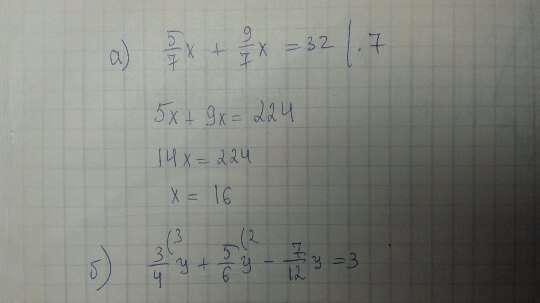 а) 5/7 x + 9/7 x = 32 | · 7
5x + 9x = 224
14x = 224
x = 16
б) 3/4 (3 y + 5/6 (2 y - 7/12 y = 3